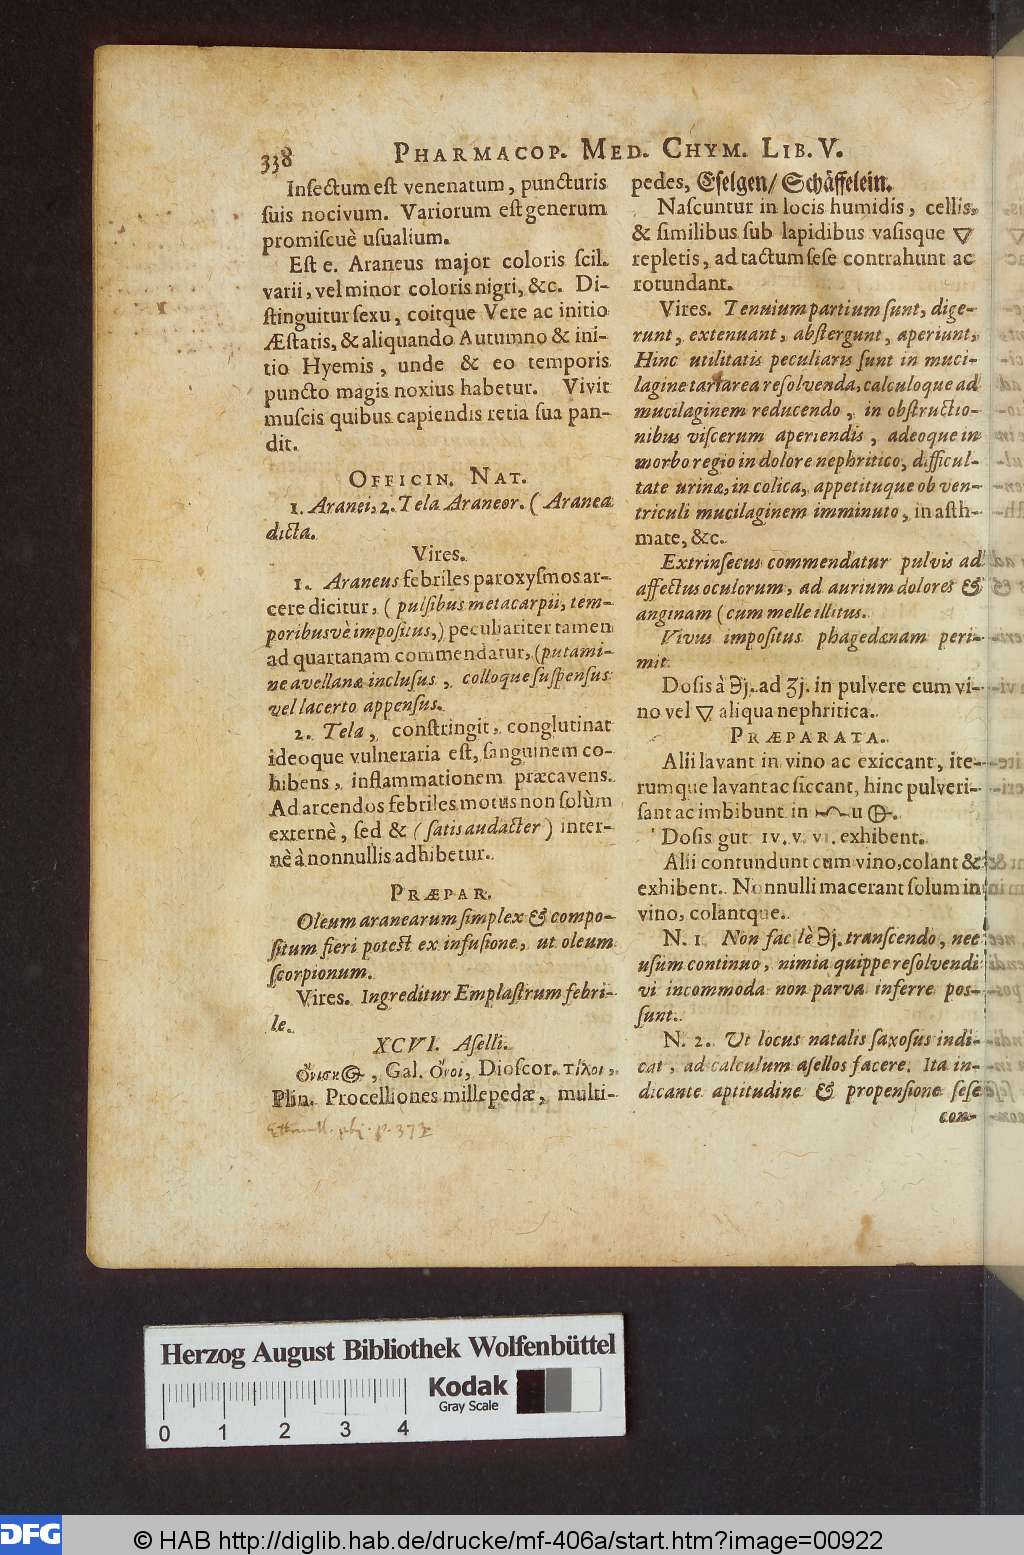 338
PHARMACOP. MED. CHYM. LIB. V.
Inſectum eſt venenatum, puncturis
ſuis nocivum. Variorum eſt generum
promiſcuè uſualium.
Eſt e. Araneus major coloris ſcil.
varii, vel minor coloris nigri, &c. Di-
ſtinguitur ſexu, coitque Vere ac initio
Æſtatis, & aliquando Autumno & ini-
tio Hyemis, unde & eo temporis
puncto magis noxius habetur. Vivit
muſcis quibus capiendis retia ſua pan-
dit.
OFFICIN. NAT.
1. Aranei, 2. Tela Araneor. (Aranea
dicta.
Vires.
1. Araneus febriles paroxyſmos ar-
cere dicitur, (pulſibus metacarpii, tem-
poribusvè impoſitus,) peculiariter tamen
ad quartanam commendatur, (putami-
ne avellanæ incluſus, colloque ſuſpenſus
vel lacerto appenſus.
2. Tela, conſtringit, conglutinat
ideoque vulneraria eſt, ſanguinem co-
hibens, inflammationem præcavens.
Ad arcendos febriles motus non ſolùm
externè, ſed & (ſatis audacter) inter-
nè à nonnullis adhibetur.
PRÆPAR.
Oleum aranearum ſimplex & compo-
ſitum fieri poteſt ex infuſione, ut oleum
ſcorpionum.
Vires. Ingreditur Emplaſtrum febri-
le.
XCVI. Aſelli.
, Gal. Ὄνοι, Dioſcor.
Plin. Procelliones millepedæ, multi-
p. 37
pedes, Eſelgen/ Schäffelein.
Naſcuntur in locis humidis, cellis,
& ſimilibus ſub lapidibus vaſisque 🜄
repletis, ad tactum ſeſe contrahunt ac
rotundant.
Vires. Tenuium partium ſunt, dige-
runt, extenuant, abſtergunt, aperiunt,
Hinc utilitatis peculiaris ſunt in muci-
lagine tartarea reſolvenda, calculoque ad
mucilaginem reducendo, in obſtructio-
nibus viſcerum aperiendis, adeoque in
morbo regio in dolore nephritico, difficul-
tate urinæ, in colica, appetituque ob ven-
triculi mucilaginem imminuto, in aſth-
mate, &c.
Extrinſecus commendatur pulvis ad
affectus oculorum, ad aurium dolores &
anginam (cum melle illitus.
Vivus impoſitus phagedænam peri-
mit.
Doſis à ℈j. ad ʒj. in pulvere cum vi-
no vel 🜄 aliqua nephritica.
PRÆPARATA.
Alii lavant in vino ac exiccant, ite-
rumque lavant ac ſiccant, hinc pulveri-
ſant ac imbibunt in u
Doſis gut IV. V. VI. exhibent.
Alii contundunt cum vino, colant &
exhibent. Nonnulli macerant ſolum in
vino, colantque.
N. 1 Non facilè ℈j. tranſcendo, nec
uſum continuo, nimia quippe reſolvendi
vi incommoda non parva inferre pos-
ſunt.
N. 2. Ut locus natalis ſaxoſus indi-
cat, ad calculum aſellos facere. Ita in-
dicante aptitudine & propenſione ſeſe
con-
Herzog August Bibliothek Wolfenbüttel
Kodak
Gray Scale
0 1 2 3 4
DFG
© HAB http://diglib.hab.de/drucke/mf-406a/start.htm?image=00922